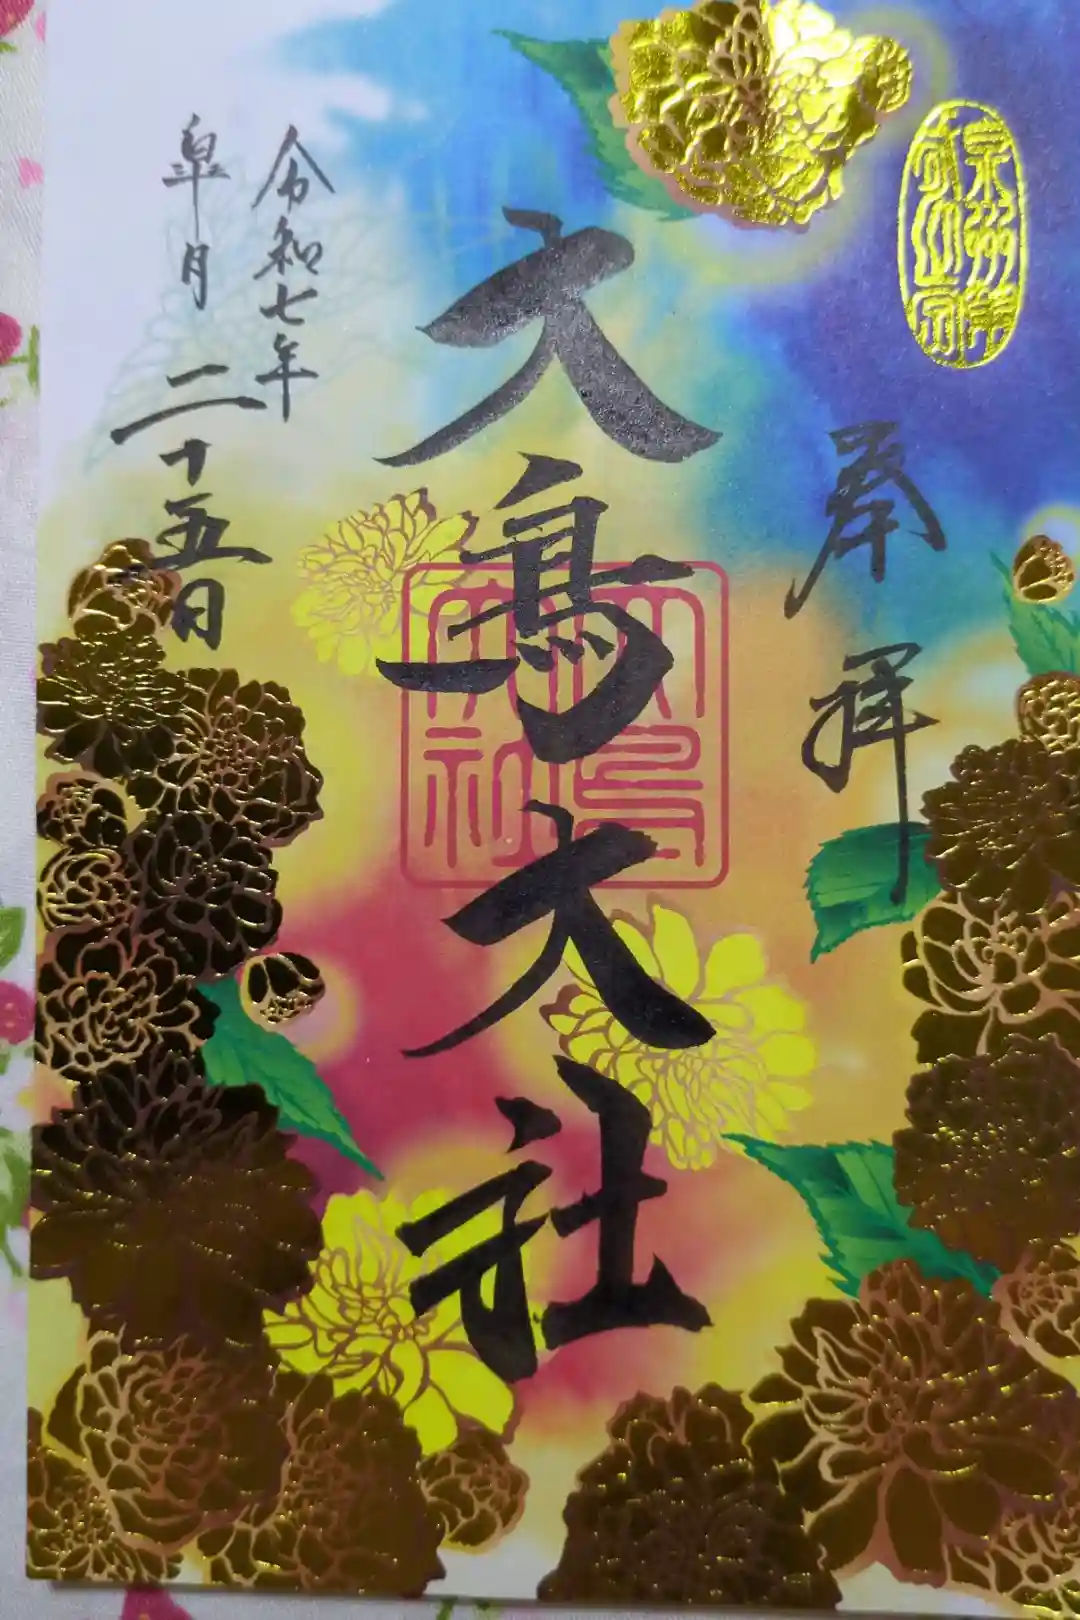 奉拝
大鳥大社
大鳥
大社
令和七年
皐月二十五日